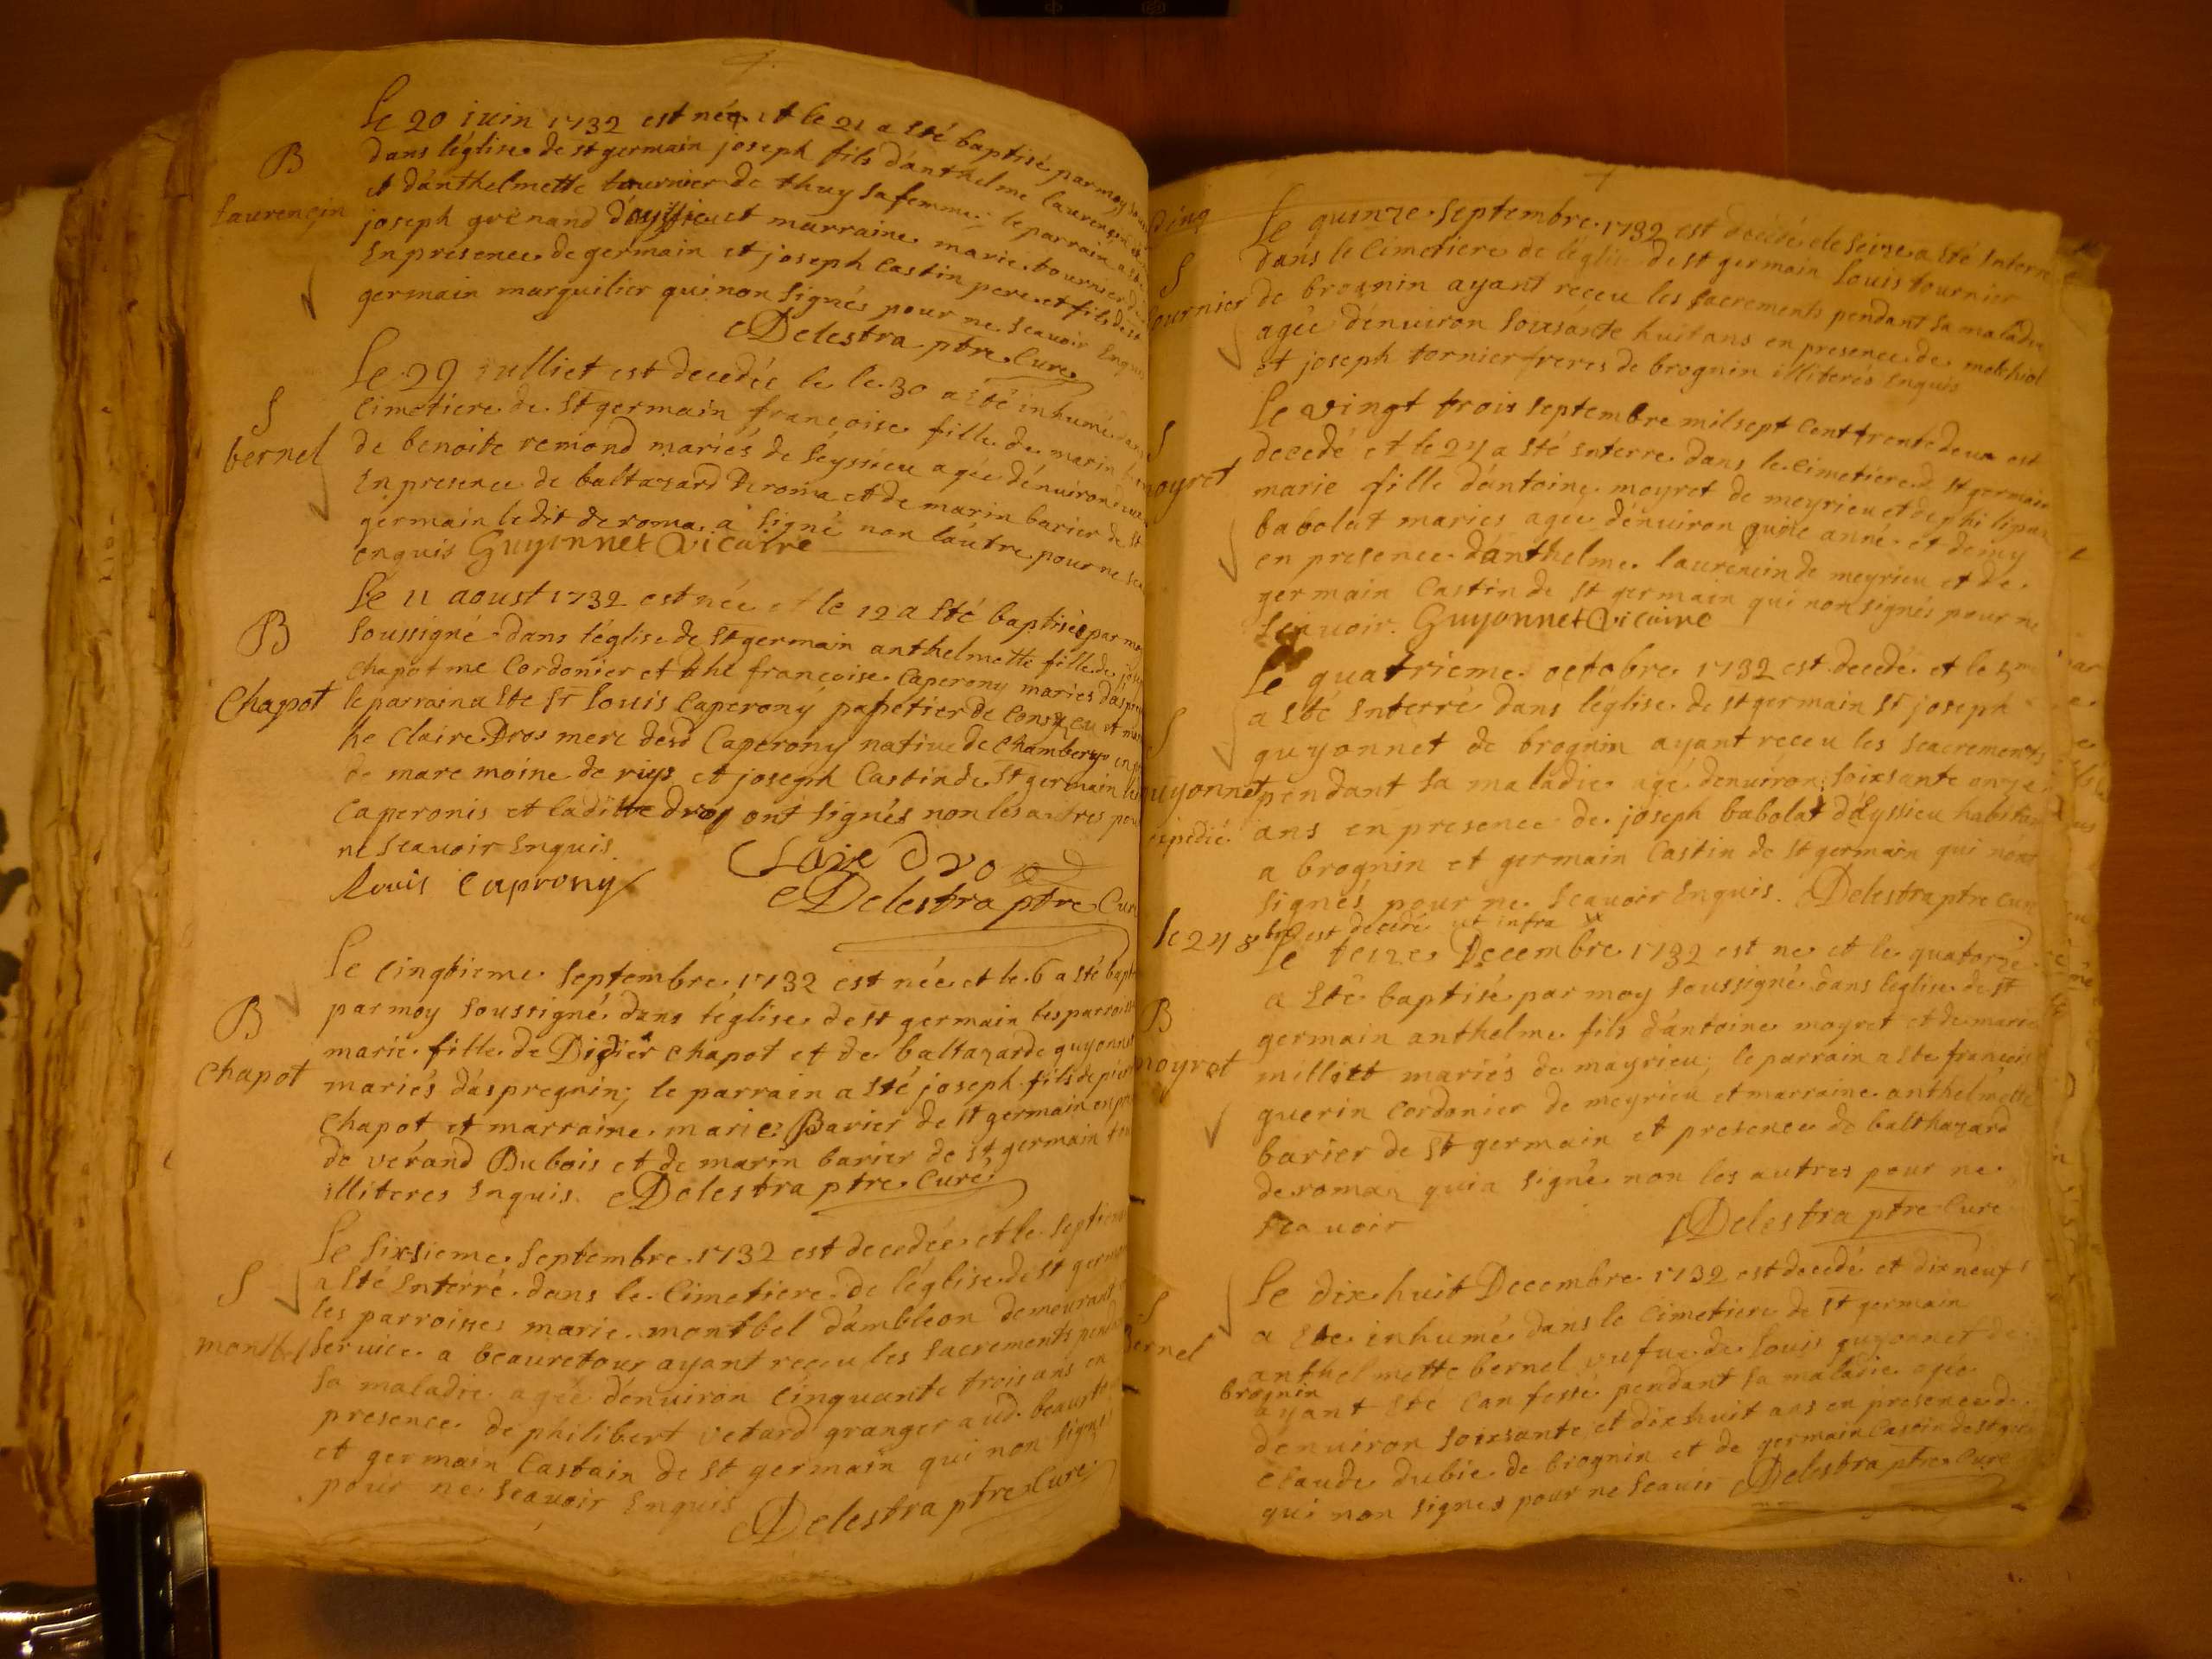 Le 20 iuin 1732 est née et le 21 a Sté baptisé par moy
B
dans l'église de st germain joseph fils d'anthelme laurencin
laurencin
et d'anthelmette tournier de thuy sa femme; le parrain a Sté
joseph grenand d'ayssieu et marraine marie tournier
En presence de germain et joseph Castin pere et fils de st
germain marguilier qui non signés pour ne Scavoir Enquis
Delestra ptre Curé
Le 29 iulliet est decedée le le 30 a Sté inhumé dans
S
Cimetiere de St germain françoise fille de marin
bernel
de benoite remond mariés de Seyssieu agée d'enuiron
En presence de baltazard Deroma et de marin barier de St
germain ledit deroma a Signé non l'autre pour ne
enquis Guyonnet Vicaire
Le 11 aoust 1732 est née et le 12 a Sté baptisée par moy
B
Soussigné dans l'église de St germain anthelmette fille de
Chapot me Cordonier et de françoise Caperony mariés
Chapot
le parrain a Ste Sr Louis Caperony papetier de et
he Claire Dros mere desd Caperony native de Chambery
de marc moine de et joseph Castin de St germain
Caperonis et laditte Droz ont signés non les autres pour
ne Scavoir Enquis
Louis Caprony
Delestra ptre Curé
Le Cinqtieme Septembre 1732 est née et le 6 a Sté
B
par moy Soussigné dans l'église de st germain les parroisses
marie fille de Didier Chapot et de baltazarde guyonnet
Chapot
mariés d'aspregnin; le parrain a Sté joseph fils de
Chapot et marraine marie Barier de St germain
de verand Dubois et de marin barier de St germain
illiteres Enquis Delestra ptre Curé
Le Sixsieme Septembre 1732 est decedée et le Septieme
S
a Sté Enterré dans le Cimetiere de l'église de St germain
les parroisses marie montbel d'ambleon demeurant
montbel
Service a beauretour ayant receu les Sacrements
sa maladie agée d'enuiron Cinquante trois ans en
presence de philibert vetard granger aud
et germain Castain de St germain qui non Signés
pour ne Scavoir Enquis
Delestra ptre Curé
Le quinze Septembre 1732 est decedé et le Seize a Sté
S
dans le Cimetiere de l'église de st germain Louis tournier
tournier
de brognin ayant receu les Sacrements pendant sa maladie
agée d'enuiron Soixante huit ans en presence de melchiol
et joseph tornier freres de brognin illiterés Enquis
Le vingt trois Septembre mil sept Cent trente deux est
S
decedé et le 24 a Sté Enterre dans le Cimetiere de St germain
moyret
marie fille d'antoine moyret de meyrieu et de
babolat maries agee d'enuiron anné et demy
en presence d'anthelme laurencin de meyrieu et de
germain Castin de St germain qui non signés pour ne
Scavoir Guyonnet Vicaire
Le quatrieme octobre 1732 est decedé et le 5me
S
a Sté Enterré dans l'église de st germain Sr joseph
guyonnet de brognin ayant receu les Seacrements
guyonnet
pendant sa maladie agé denuiron Soixsante onze
expedié
ans en presence de joseph babolat d'ayssieu habitant
a brognin et germain Castin de st germain qui nont
Signés pour ne Scavoir Enquis. Delestra ptre Curé
le 24 8bre est decedé ut infra
Le treze Decembre 1732 est ne et le quatorze
B
a Sté baptisé par moy Soussigné dans l'eglise de St
germain anthelme fils d'antoine moyret et de marie
moyret
mariés de mayrieu; le parrain a Ste françois
guerin Cordonier de meyrieu et marraine anthelmette
barier de St germain et presence de balthazard
deroman qui a Signé non les autres pour ne
Scavoir
Delestra ptre Curé
Le dix huit Decembre 1732 est decedé et dix neuf
S
a Ete inhumé dans le Cimetiere de St germain
bernel
anthelmette bernel vefue de Louis guyonnet de
brognin
ayant Sté Confessé pendant sa maladie agée
denuiron Soixsante et dix huit ans en presence de
Claude dubie de brognin et de germain Castin de St
qui non signes pour ne Scauir Delestra ptre Curé